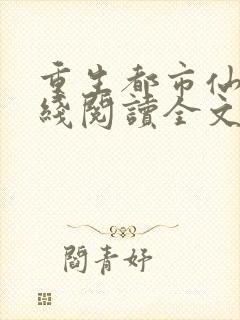 重生都市仙
綫閱讀全文
閻青妤